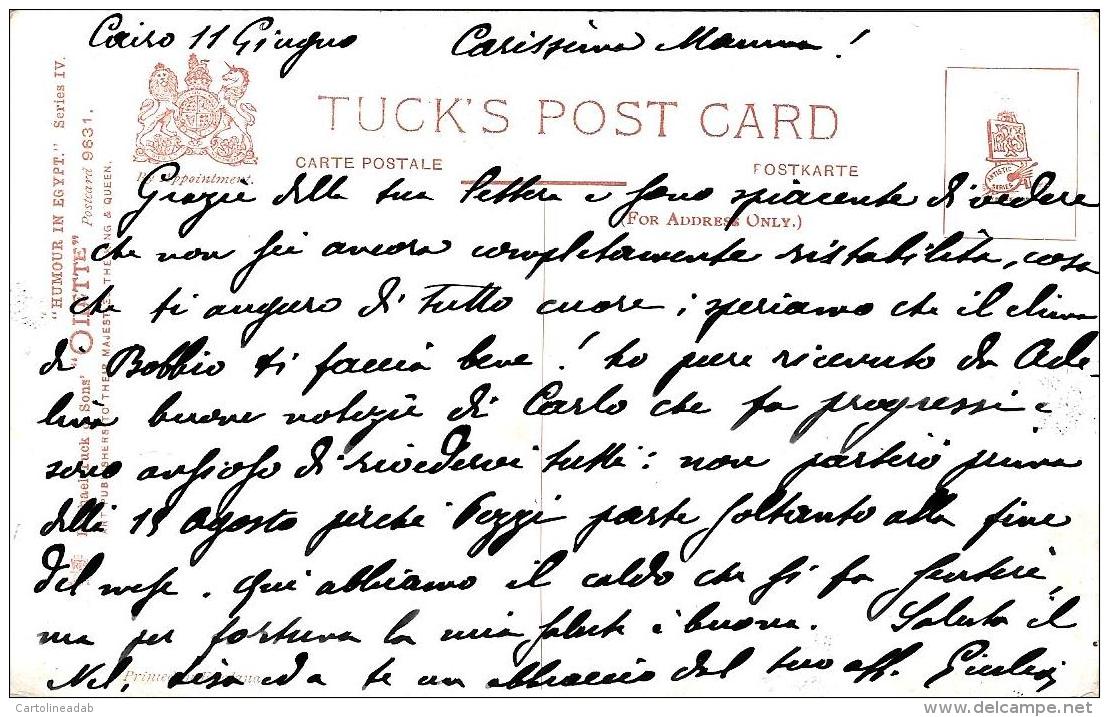 Cairo 11 Giugno Carissima Mamma!
TUCK'S POST CARD
CARTE POSTALE POSTKARTE
(FOR ADDRESS ONLY.)
By Appointment.
ARTISTIC SERIES
"HUMOUR IN EGYPT." Series IV.
"OILETTE" Postcard 9631.
Raphael Tuck & Sons'
ART PUBLISHERS TO THEIR MAJESTIES THE KING & QUEEN.
Grazie della tua lettera e sono spiacente di vedere
che non sei ancora completamente ristabilita, cosa
che ti auguro di tutto cuore; speriamo che il clima
di Bobbio ti faccia bene! ho pure ricevuto da Ade-
lina buone notizie di Carlo che fa progressi e
sono ansioso di rivedervi tutti: non partirò prima
delli 15 Agosto perché Peggi parte soltanto alla fine
del mese. Qui abbiamo il caldo che si fa sentire,
ma per fortuna la mia salute è buona. Saluta il
ed a te un abbraccio dal tuo aff.
Printed in
Cartolineadab
delcampe.net